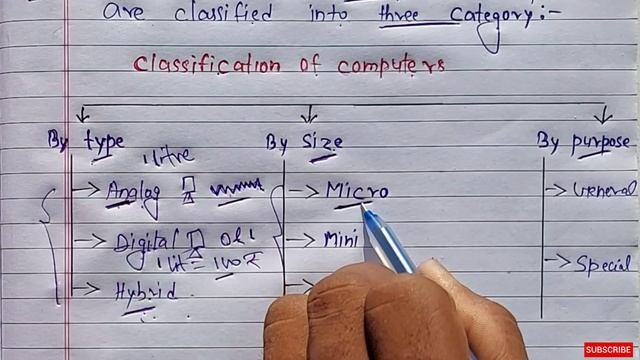 are classified into three category:-
Classification of computers
By type By size By purpose
1 litre
Analog Micro General
Digital 0 1 Mini
1 lit = 100₹
Special
Hybrid
SUBSCRIBE